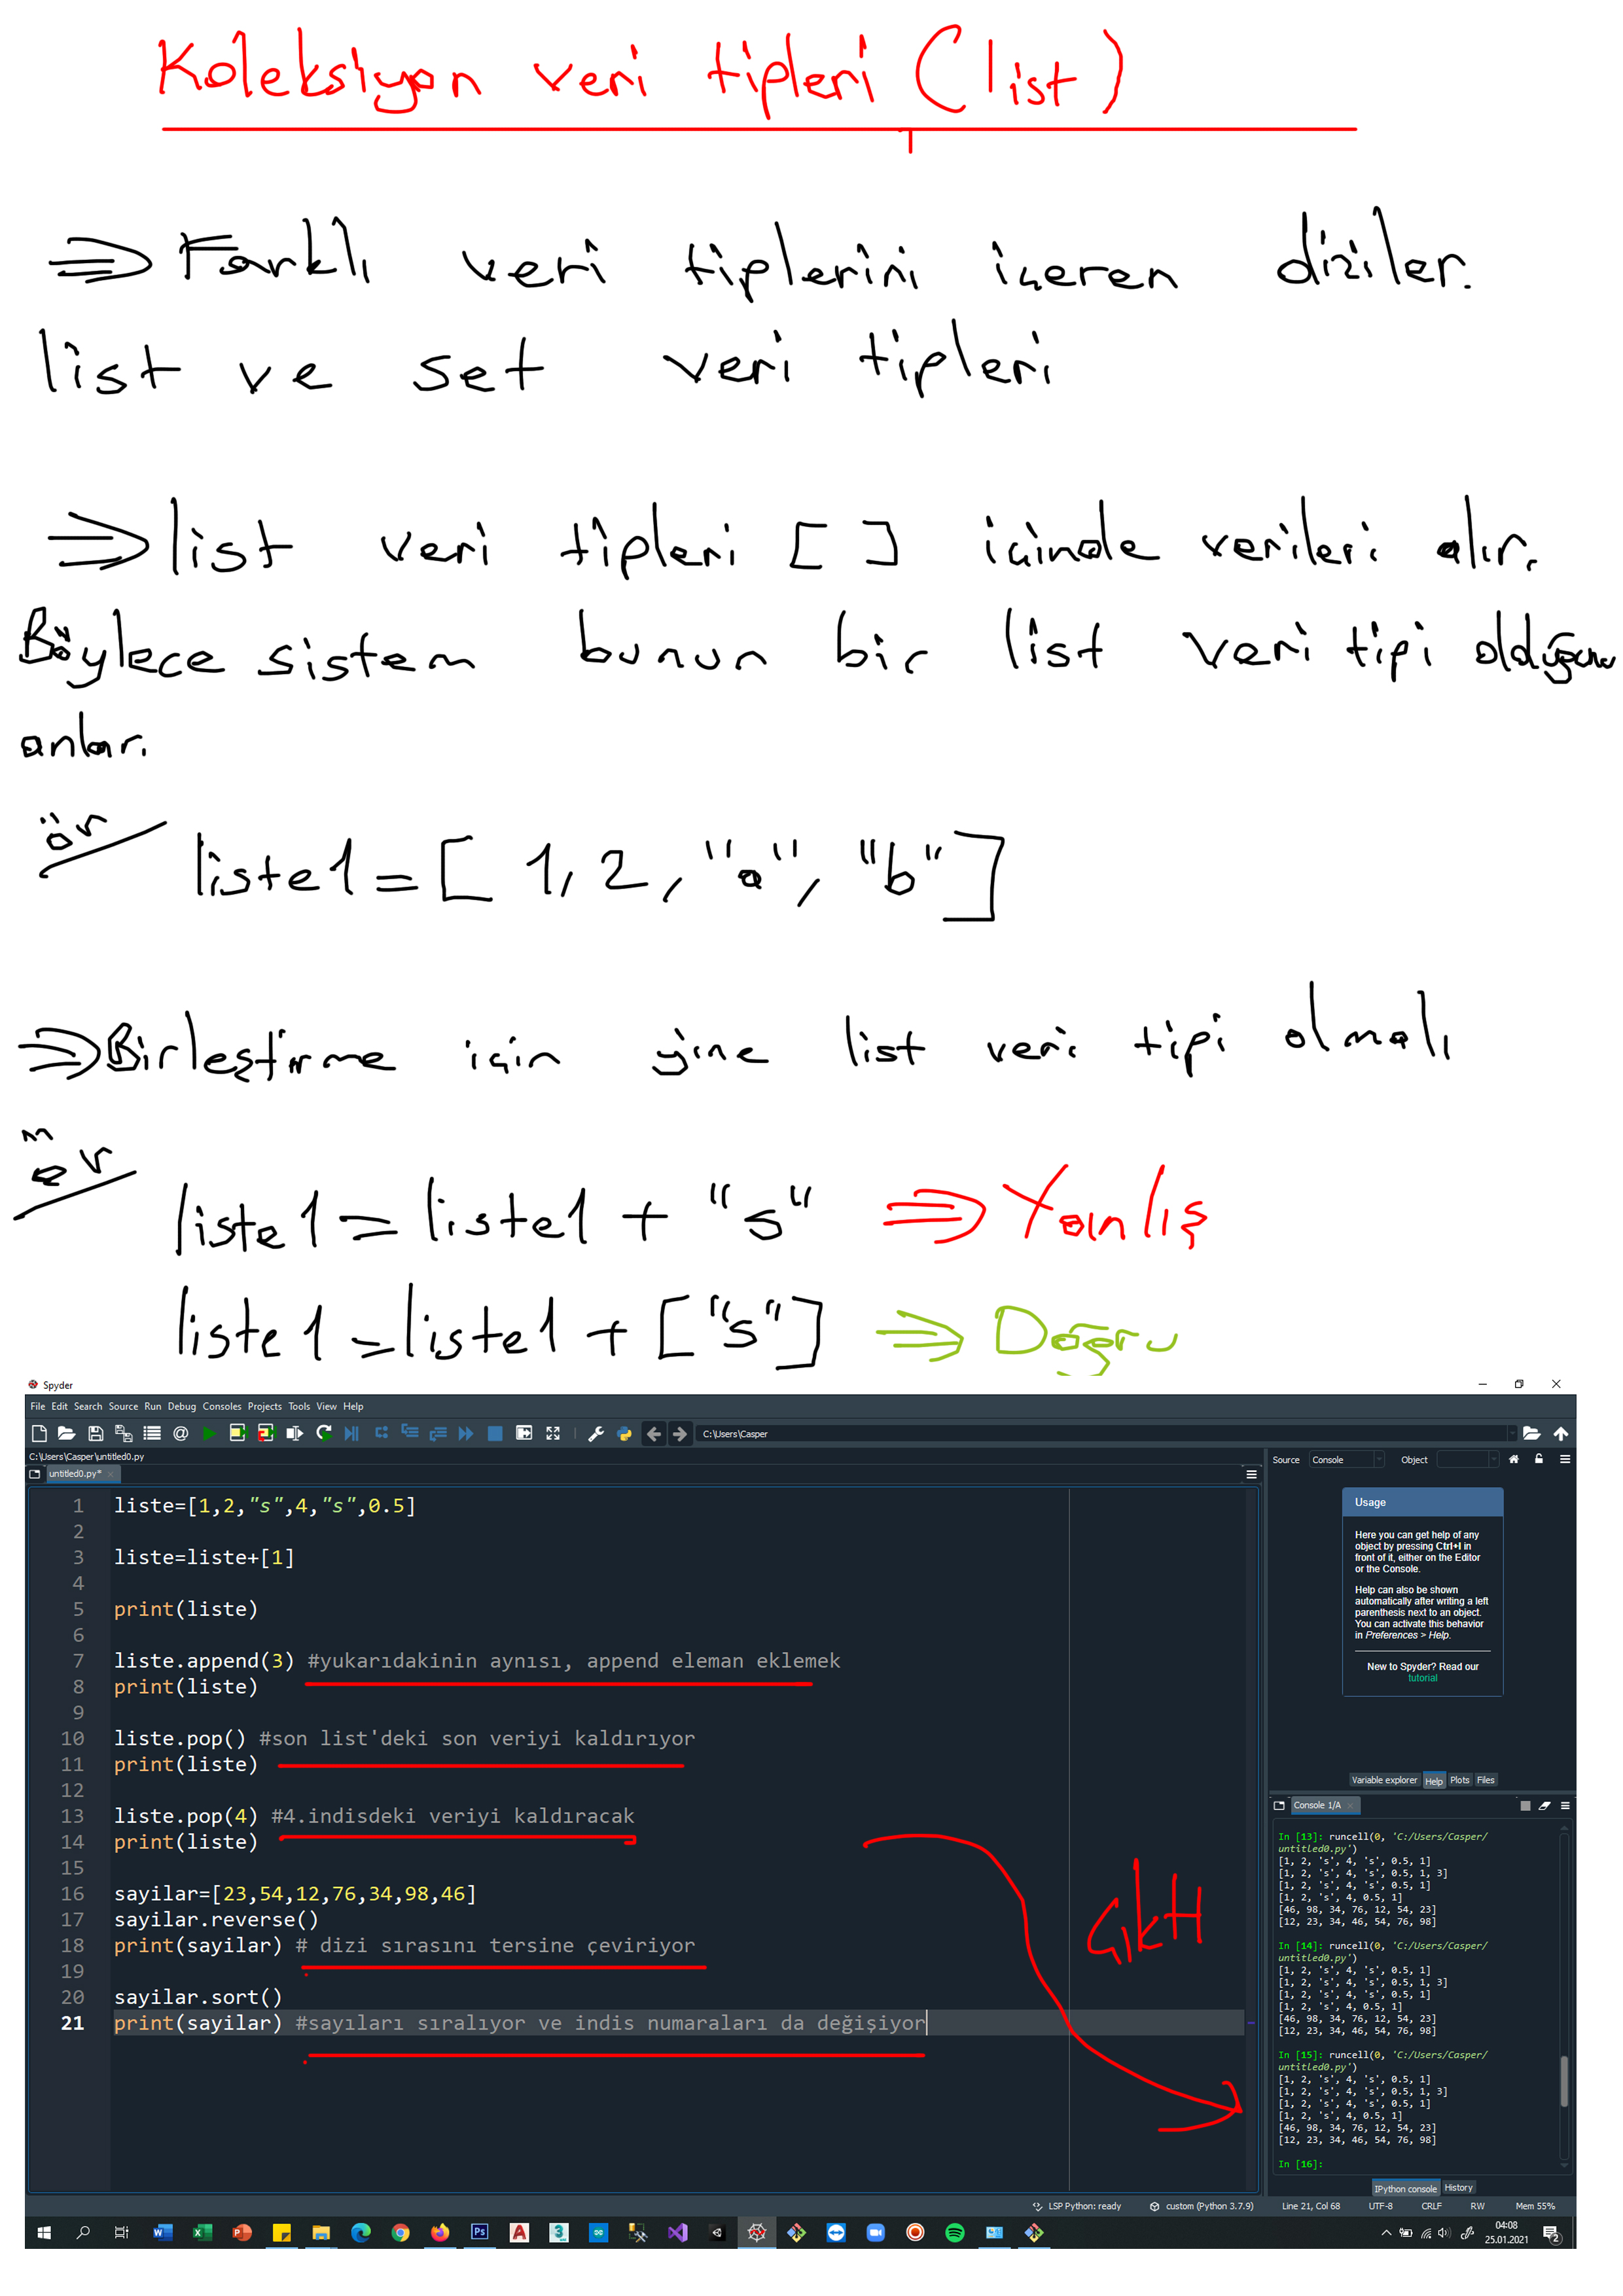 Koleksiyon veri tipleri (list)
⇒ Farklı veri tiplerini içeren diziler.
list ve set veri tipleri
⇒ list veri tipleri [ ] içinde verileri alır.
Böylece sistem bunun bir list veri tipi olduğunu
anlar.
ör
liste1 = [ 1, 2, "a", "b" ]
⇒ Birleştirme için yine list veri tipi olmalı
ör
liste1 = liste1 + "s" ⇒ Yanlış
liste1 = liste1 + ["s"] ⇒ Doğru
Spyder
File Edit Search Source Run Debug Consoles Projects Tools View Help
C:\Users\Casper
C:\Users\Casper\untitled0.py
untitled0.py*
1 liste=[1,2,"s",4,"s",0.5]
2
3 liste=liste+[1]
4
5 print(liste)
6
7 liste.append(3) #yukarıdakinin aynısı, append eleman eklemek
8 print(liste)
9
10 liste.pop() #son list'deki son veriyi kaldırıyor
11 print(liste)
12
13 liste.pop(4) #4.indisdeki veriyi kaldıracak
14 print(liste)
15
16 sayilar=[23,54,12,76,34,98,46]
17 sayilar.reverse()
18 print(sayilar) # dizi sırasını tersine çeviriyor
19
20 sayilar.sort()
21 print(sayilar) #sayıları sıralıyor ve indis numaraları da değişiyor
çıktı
Source Console Object
Usage
Here you can get help of any
object by pressing Ctrl+I in
front of it, either on the Editor
or the Console.
Help can also be shown
automatically after writing a left
parenthesis next to an object.
You can activate this behavior
in Preferences > Help.
New to Spyder? Read our
tutorial
Variable explorer Help Plots Files
Console 1/A
In [13]: runcell(0, 'C:/Users/Casper/
untitled0.py')
[1, 2, 's', 4, 's', 0.5, 1]
[1, 2, 's', 4, 's', 0.5, 1, 3]
[1, 2, 's', 4, 's', 0.5, 1]
[1, 2, 's', 4, 0.5, 1]
[46, 98, 34, 76, 12, 54, 23]
[12, 23, 34, 46, 54, 76, 98]
In [14]: runcell(0, 'C:/Users/Casper/
untitled0.py')
[1, 2, 's', 4, 's', 0.5, 1]
[1, 2, 's', 4, 's', 0.5, 1, 3]
[1, 2, 's', 4, 's', 0.5, 1]
[1, 2, 's', 4, 0.5, 1]
[46, 98, 34, 76, 12, 54, 23]
[12, 23, 34, 46, 54, 76, 98]
In [15]: runcell(0, 'C:/Users/Casper/
untitled0.py')
[1, 2, 's', 4, 's', 0.5, 1]
[1, 2, 's', 4, 's', 0.5, 1, 3]
[1, 2, 's', 4, 's', 0.5, 1]
[1, 2, 's', 4, 0.5, 1]
[46, 98, 34, 76, 12, 54, 23]
[12, 23, 34, 46, 54, 76, 98]
In [16]:
IPython console History
LSP Python: ready custom (Python 3.7.9) Line 21, Col 68 UTF-8 CRLF RW Mem 55%
04:08
25.01.2021
2